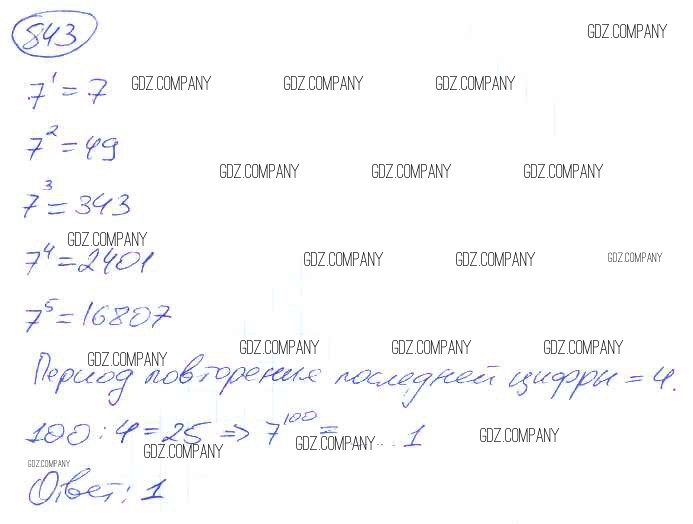 843
GDZ.COMPANY
7¹ = 7 GDZ.COMPANY GDZ.COMPANY GDZ.COMPANY
7² = 49
GDZ.COMPANY GDZ.COMPANY GDZ.COMPANY
7³ = 343
GDZ.COMPANY
7⁴ = 2401 GDZ.COMPANY GDZ.COMPANY GDZ.COMPANY
7⁵ = 16807
GDZ.COMPANY GDZ.COMPANY GDZ.COMPANY GDZ.COMPANY
Период повторения последней цифры = 4.
100 : 4 = 25 => 7¹⁰⁰ = ... 1
GDZ.COMPANY GDZ.COMPANY GDZ.COMPANY
GDZ.COMPANY
Ответ: 1